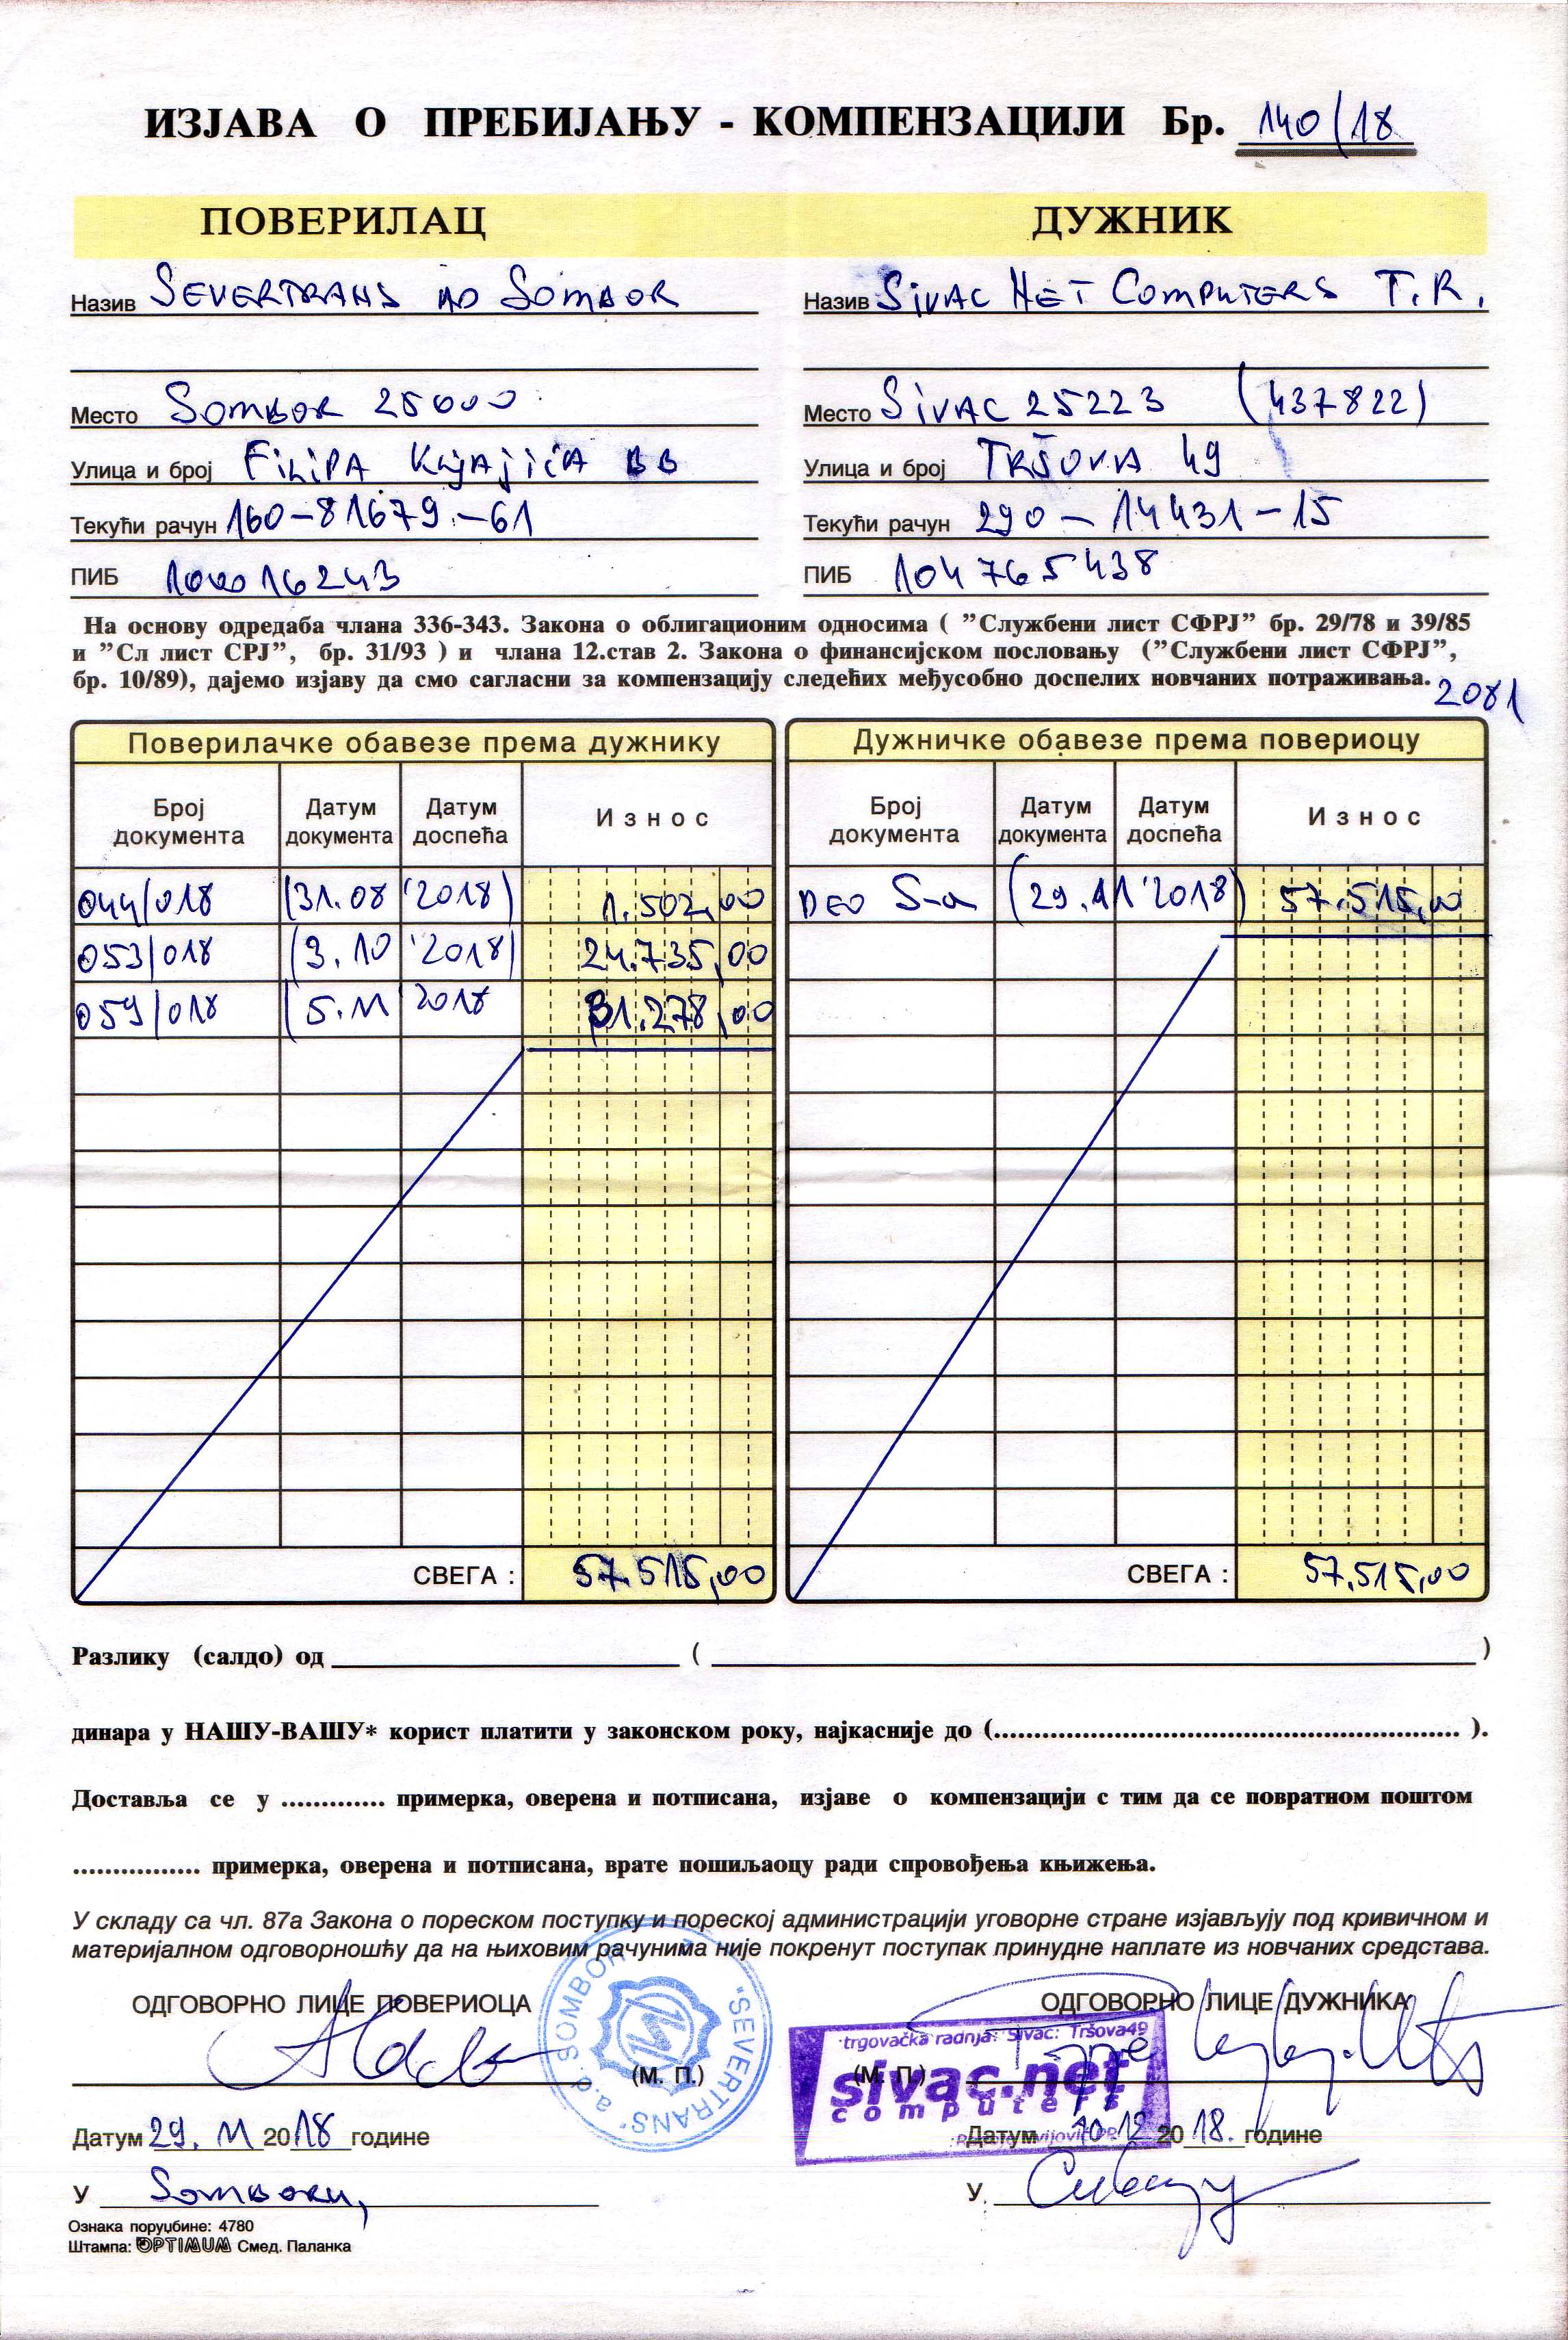 ИЗЈАВА О ПРЕБИЈАЊУ - КОМПЕНЗАЦИЈИ Бр. 140/18
ПОВЕРИЛАЦ ДУЖНИК
Назив SEVERTRANS AD SOMBOR Назив SIVAC NET COMPUTERS T.R.
Место SOMBOR 25000 Место SIVAC 25223 (437822)
Улица и број FILIPA KLJAJIĆA BB Улица и број TRŠOVA 49
Текући рачун 160-81679-61 Текући рачун 290-14431-15
ПИБ 100016243 ПИБ 104765438
На основу одредаба члана 336-343. Закона о облигационим односима ( ”Службени лист СФРЈ” бр. 29/78 и 39/85
и ”Сл лист СРЈ”, бр. 31/93 ) и члана 12.став 2. Закона о финансијском пословању (”Службени лист СФРЈ”,
бр. 10/89), дајемо изјаву да смо сагласни за компензацију следећих међусобно доспелих новчаних потраживања.
2081
Поверилачке обавезе према дужнику Дужничке обавезе према повериоцу
Број документа Датум документа Датум доспећа Износ Број документа Датум документа Датум доспећа Износ
044/018 (31.08 '2018) 1.502,00 DEO S-a (29.11 '2018) 57.515,00
053/018 (3.10 '2018) 24.735,00
059/018 (5.11 '2018 31.278,00
СВЕГА : 57.515,00 СВЕГА : 57.515,00
Разлику (салдо) од ( )
динара у НАШУ-ВАШУ* корист платити у законском року, најкасније до (.......................................................... ).
Доставља се у ............. примерка, оверена и потписана, изјаве о компензацији с тим да се повратном поштом
................ примерка, оверена и потписана, врате пошиљаоцу ради спровођења књижења.
У складу са чл. 87а Закона о пореском поступку и пореској администрацији уговорне стране изјављују под кривичном и
материјалном одговорношћу да на њиховим рачунима није покренут поступак принудне наплате из новчаних средстава.
ОДГОВОРНО ЛИЦЕ ПОВЕРИОЦА ОДГОВОРНО ЛИЦЕ ДУЖНИКА
a.d. SOMBOR "SEVERTRANS"
trgovačka radnja: Sivac: Tršova49
sivac.net
computers
(М. П.) (М. П.)
Датум 29. 11 2018 године Датум 10.12 2018. године
У SOMBORU, У Сивацу
Ознака поруџбине: 4780
Штампа: OPTIMUM Смед. Паланка